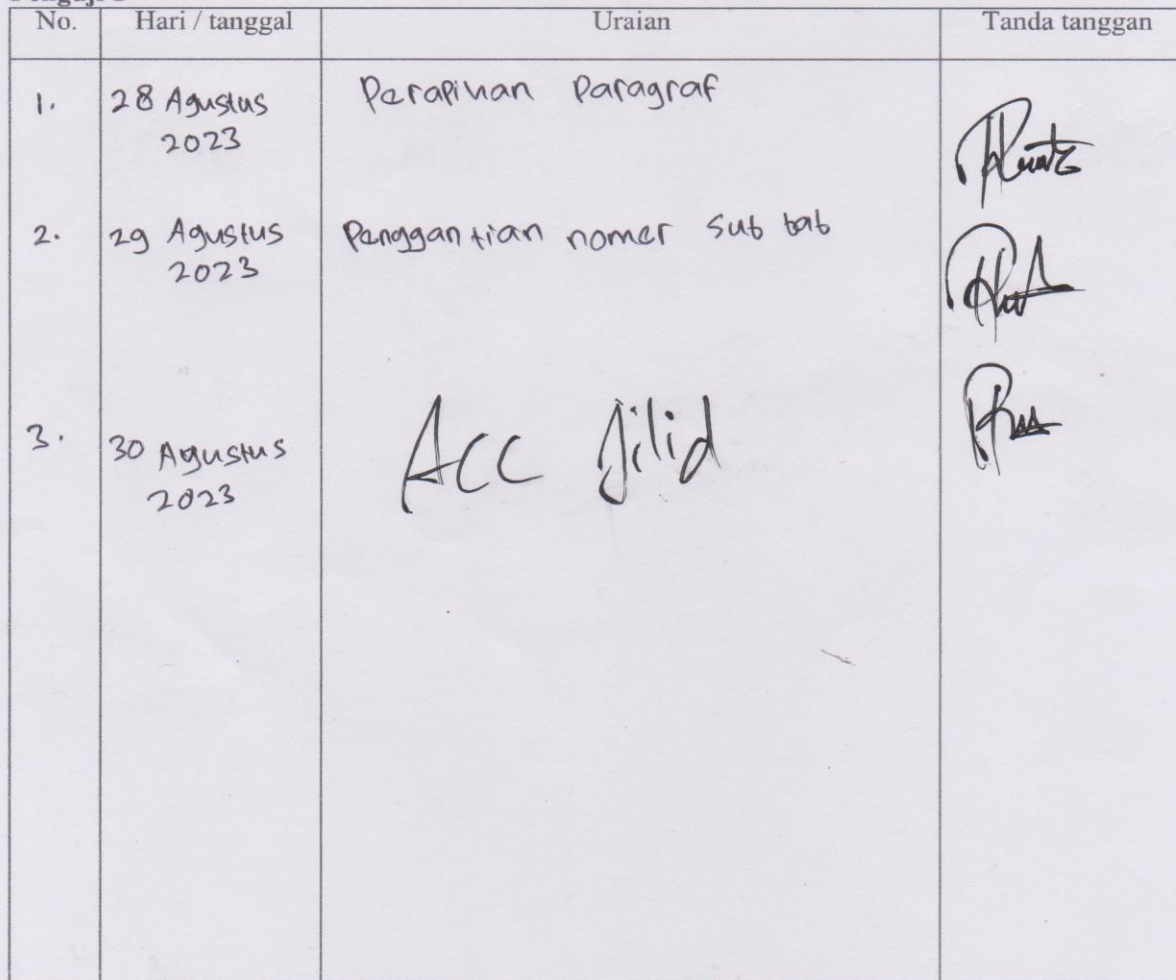 No. Hari / tanggal Uraian Tanda tanggan
1. 28 Agustus 2023 Perapihan Paragraf
2. 29 Agustus 2023 Penggantian nomer Sub bab
3. 30 Agustus 2023 Acc Jilid